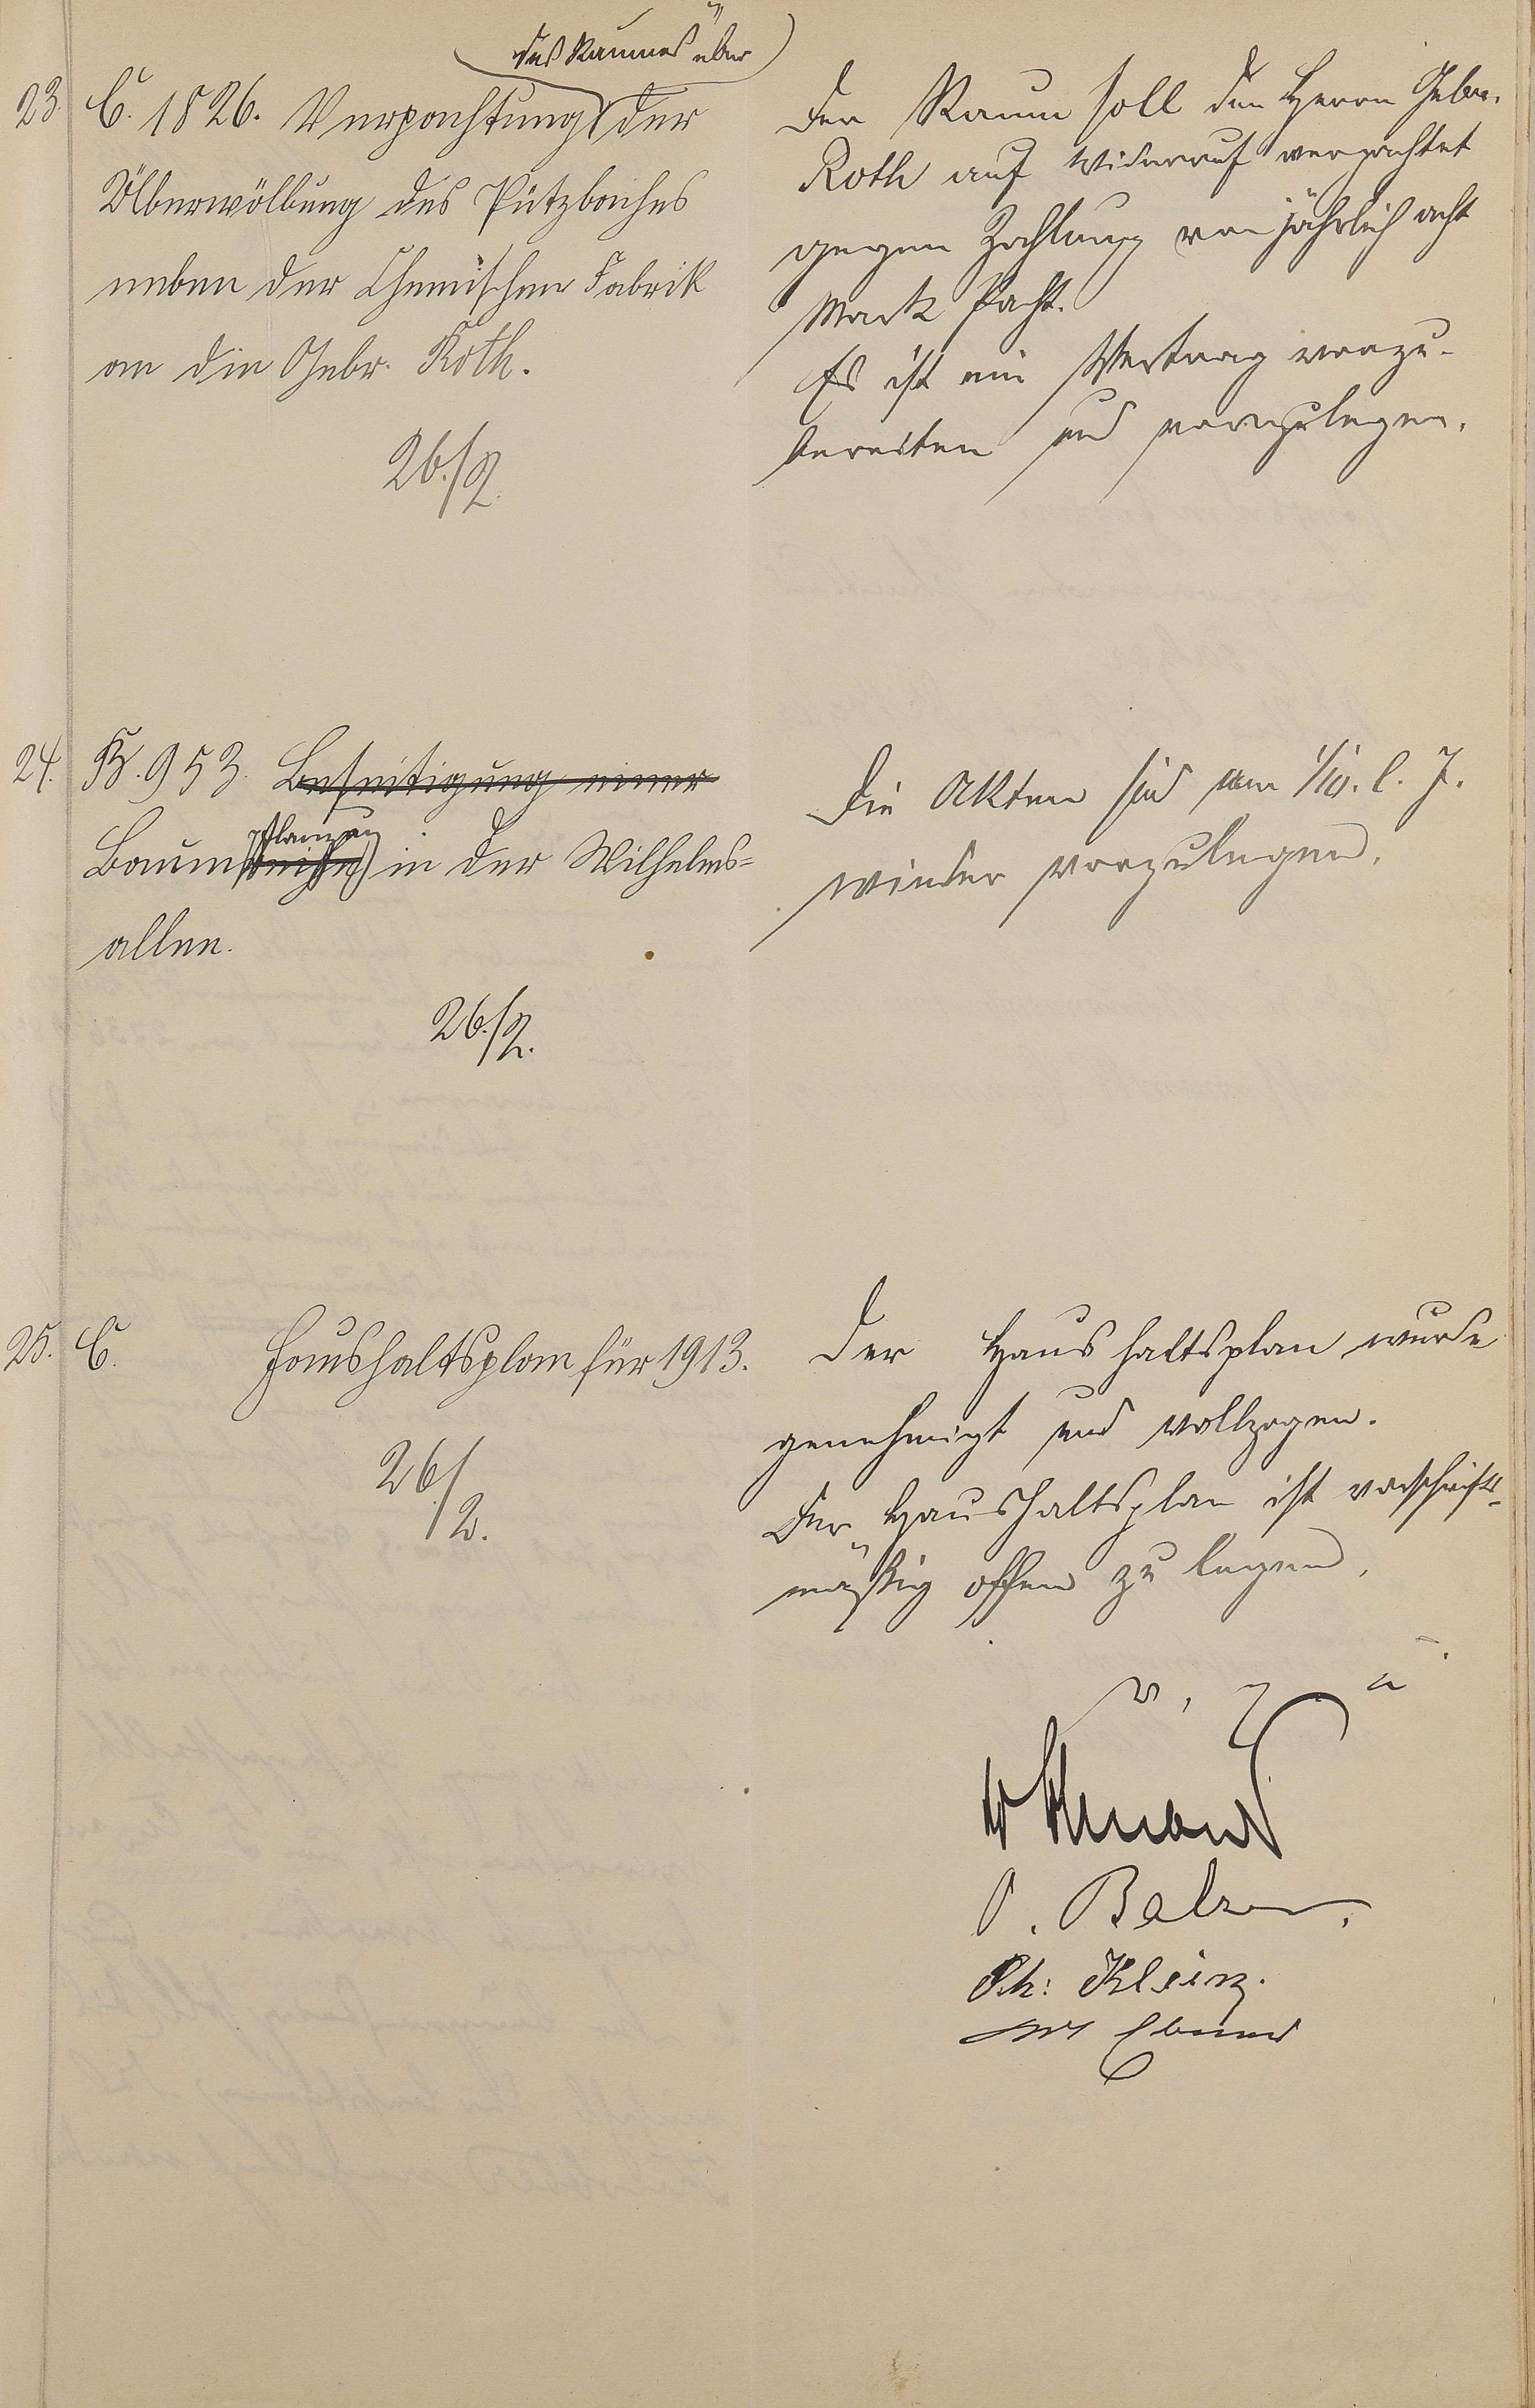 des Raumes über
23. C. 1826. Verpachtung der
Überwölbung des Pützbaches
neben der Chemischen Fabrik
an die Gebr. Roth.
26./2.
Der Raum soll den Herrn Gebr.
Roth auf Widerruf verpachtet
gegen Zahlung von jährlich acht
Mark Pacht.
Es ist ein Vertrag vorzu-
bereiten und vorzulegen.
24. B. 953. Beseitigung einer
pflanzung
Baumreihe in der Wilhelms=
allee.
26./2.
Die Akten sind am 1/10. l. J.
wieder vorzulegen.
25. C. Haushaltsplan für 1913.
26/2.
Der Haushaltsplan wurde
genehmigt und vollzogen.
Der Haushaltsplan ist vorschrifts-
mäßig offen zu legen.
v. g. u.
O. Balzer.
Ph: Klein.